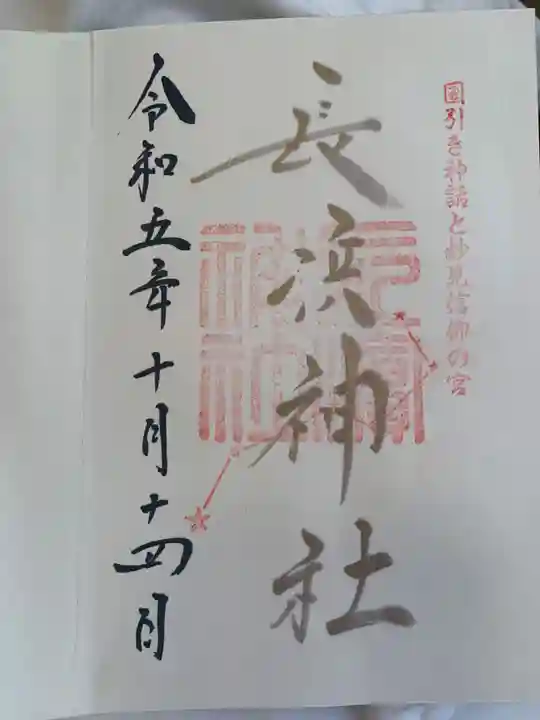 國引き神話と妙見信仰の宮
長浜神社
令和五年十月十四日